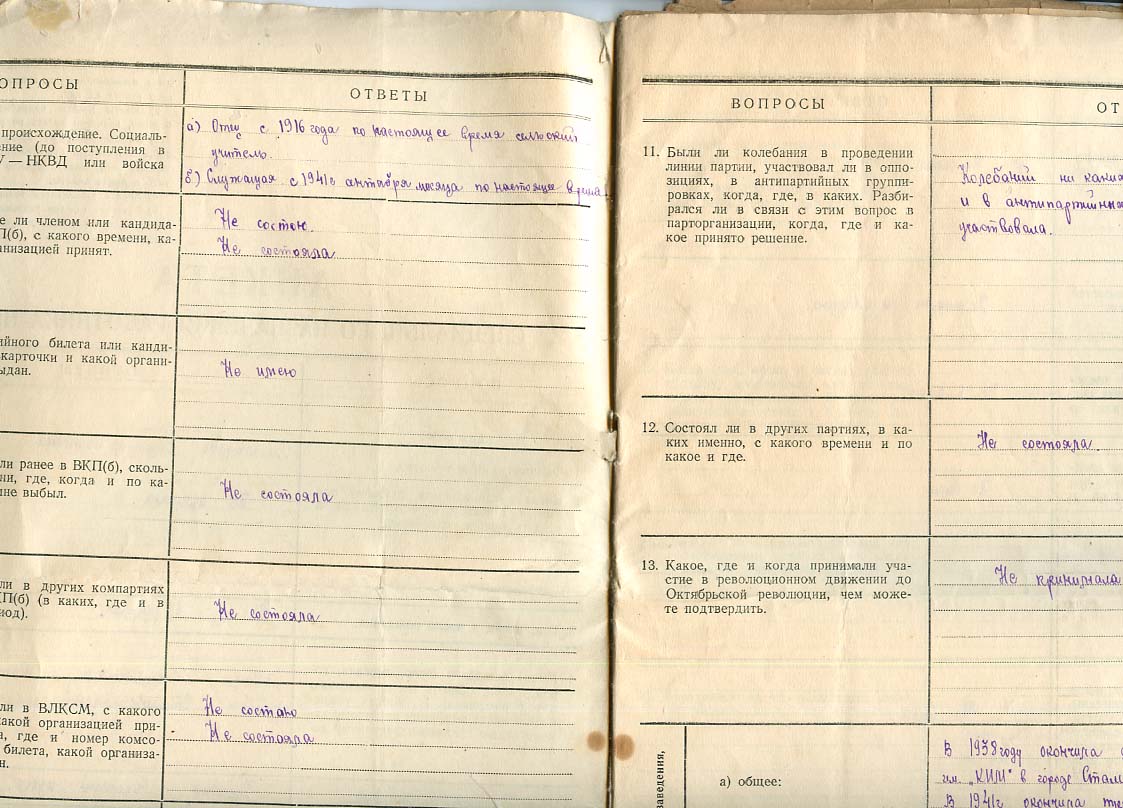 ОПРОСЫ
ОТВЕТЫ
происхождение. Социаль-
ение (до поступления в
У — НКВД или войска
а) Отец с 1916 года по настоящее время сельский
учитель.
б) Служащая с 1941г. месяца по настоящее время
е ли членом или кандида-
П(б), с какого времени, ка-
низацией принят.
Не состою.
Не состояла
ийного билета или канди-
карточки и какой органи-
ыдан.
Не имею
ли ранее в ВКП(б), сколь-
ни, где, когда и по ка-
ине выбыл.
Не состояла
ли в других компартиях
КП(б) (в каких, где и в
иод).
Не состояла
ли в ВЛКСМ, с какого
какой организацией при-
а, где и номер комсо-
билета, какой организа-
н.
Не состою
Не состояла
ВОПРОСЫ
ОТ
11. Были ли колебания в проведении
линии партии, участвовал ли в оппо-
зициях, в антипартийных группи-
ровках, когда, где, в каких. Разби-
рался ли в связи с этим вопрос в
парторганизации, когда, где и ка-
кое принято решение.
Колебаний ни каких
и в антипартийных
участвовала.
12. Состоял ли в других партиях, в ка-
ких именно, с какого времени и по
какое и где.
Не состояла.
13. Какое, где и когда принимали уча-
стие в революционном движении до
Октябрьской революции, чем може-
те подтвердить.
Не принимала
заведения,
а) общее:
В 1938 году окончила
им. „КИМ" в городе Стали
В 1941г окончила